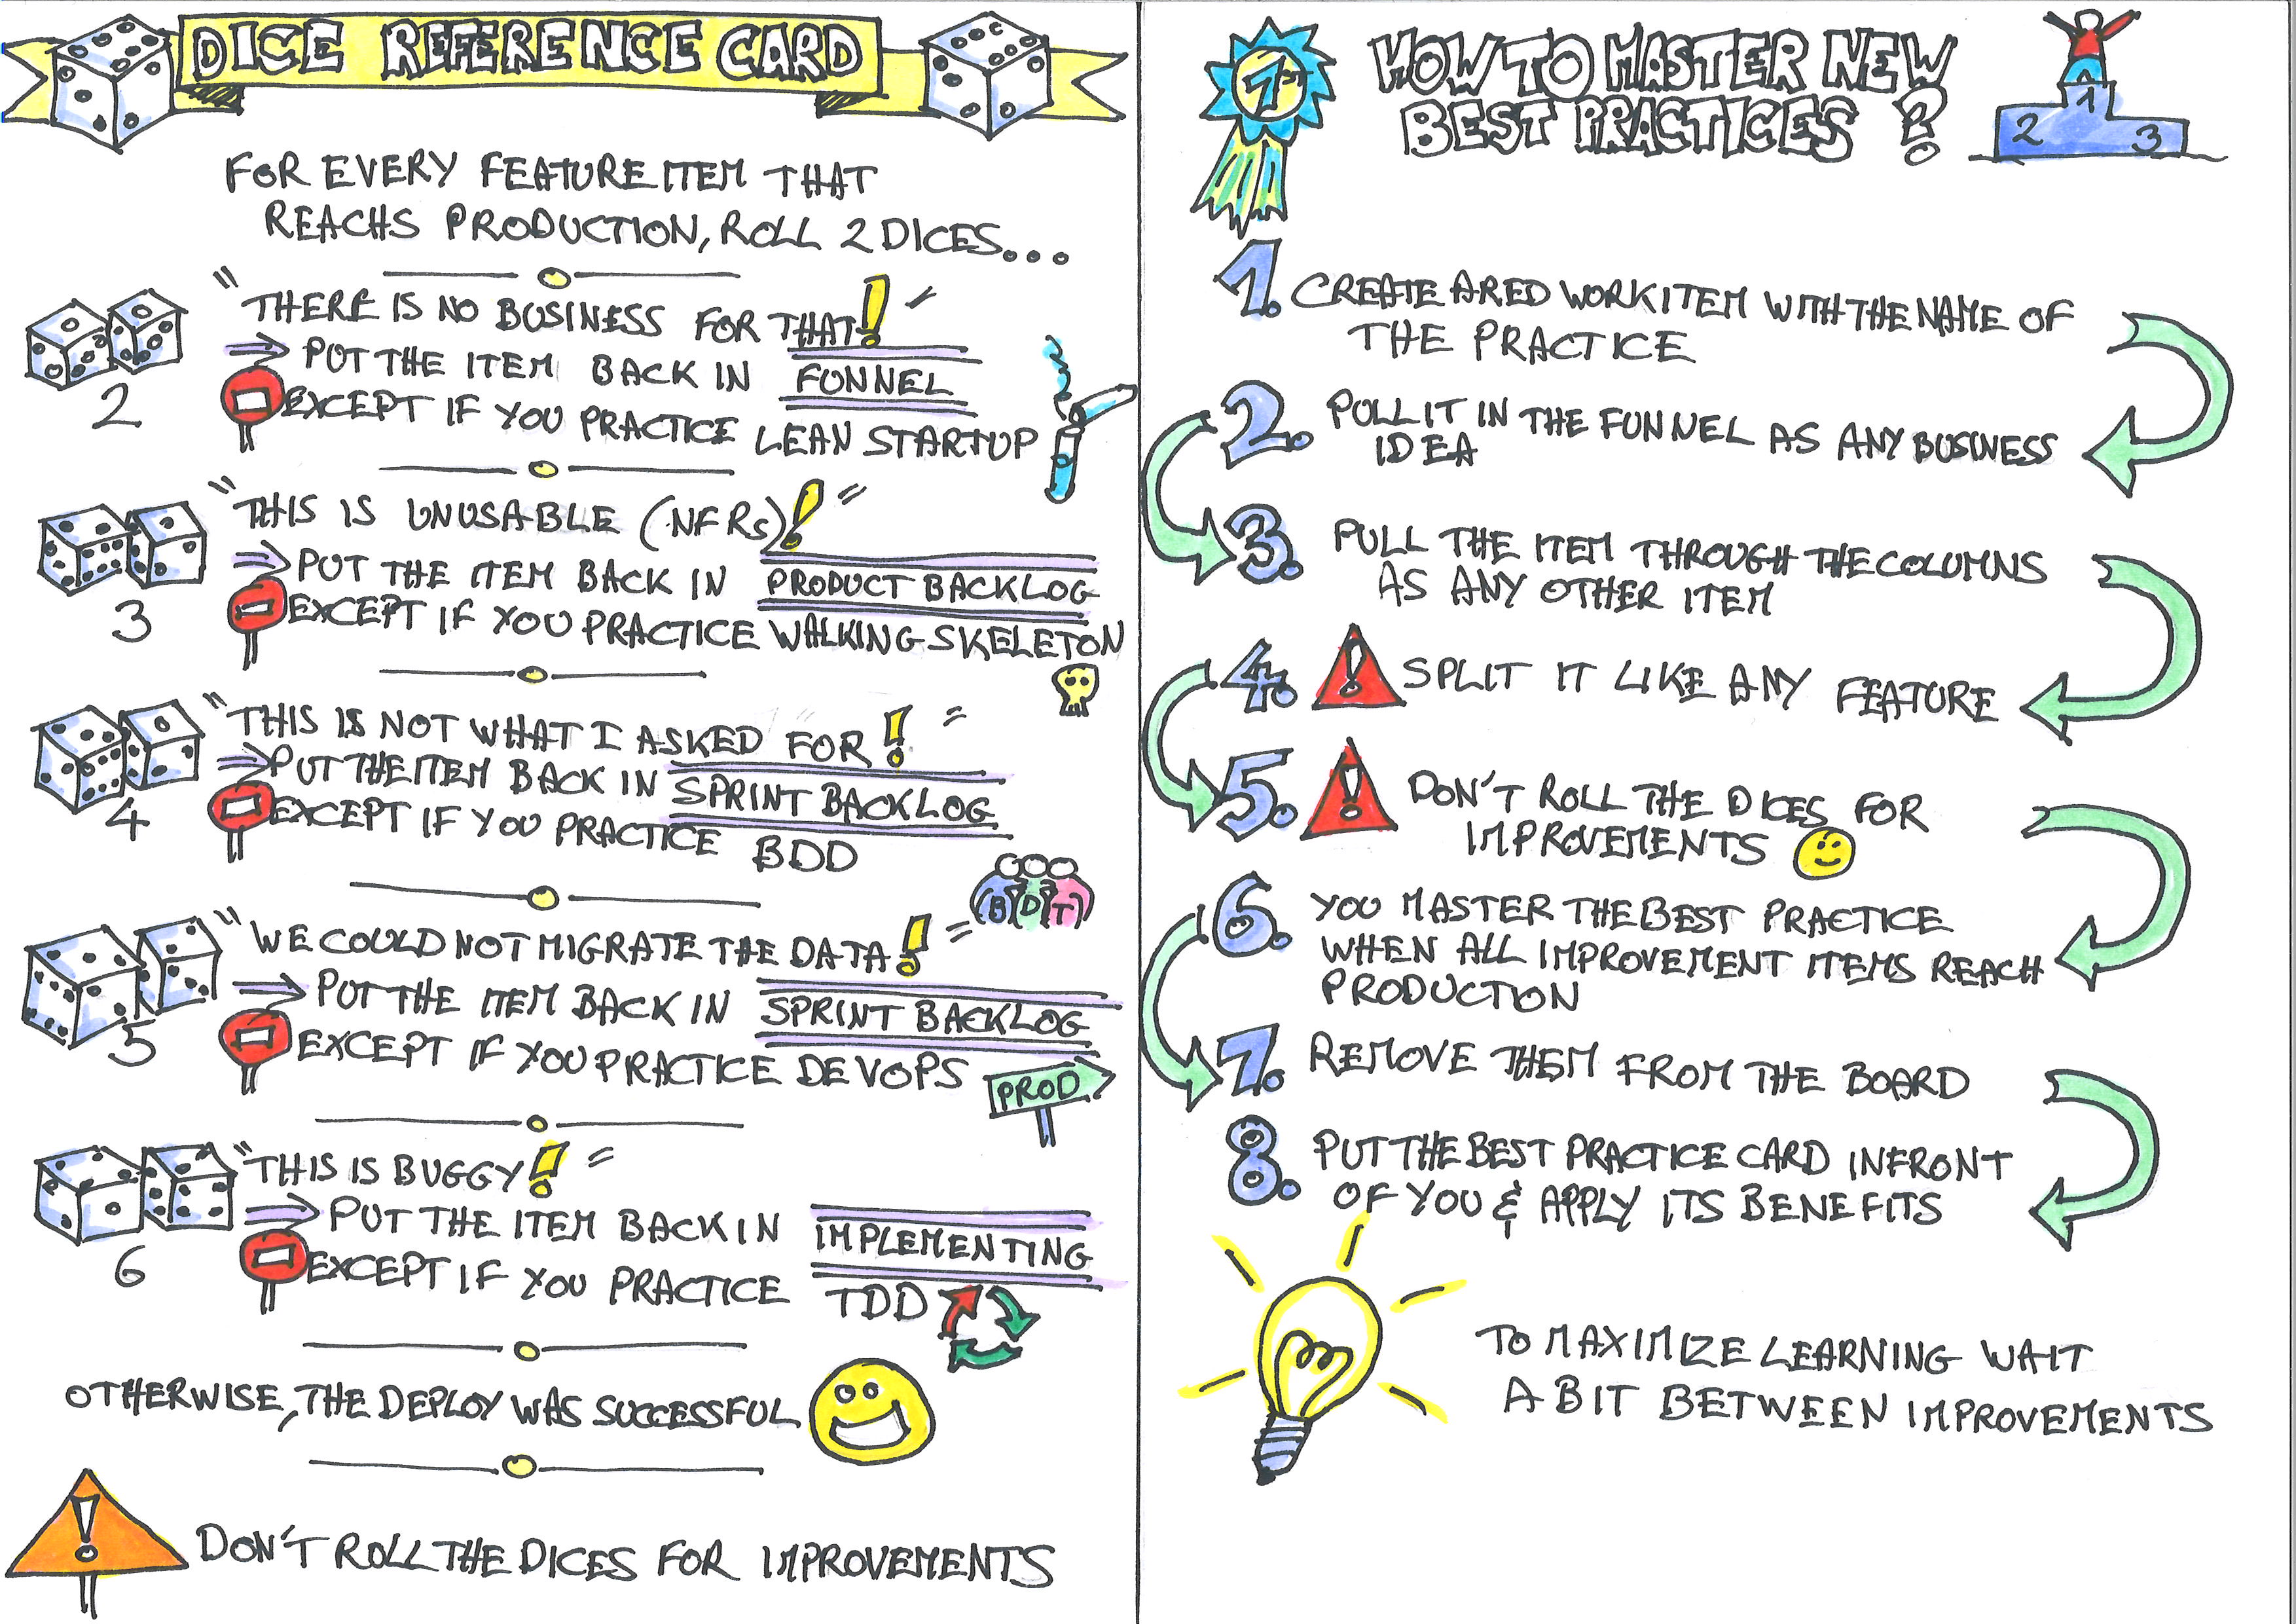 DICE REFERENCE CARD
FOR EVERY FEATURE ITEM THAT
REACHS PRODUCTION, ROLL 2 DICES...
2
"THERE IS NO BUSINESS FOR THAT!"
⇒ PUT THE ITEM BACK IN FUNNEL
EXCEPT IF YOU PRACTICE LEAN STARTUP
3
"THIS IS UNUSABLE (NFRs)!"
⇒ PUT THE ITEM BACK IN PRODUCT BACKLOG
EXCEPT IF YOU PRACTICE WALKING SKELETON
4
"THIS IS NOT WHAT I ASKED FOR!"
⇒ PUT THE ITEM BACK IN SPRINT BACKLOG
EXCEPT IF YOU PRACTICE BDD
B D T
5
"WE COULD NOT MIGRATE THE DATA!"
⇒ PUT THE ITEM BACK IN SPRINT BACKLOG
EXCEPT IF YOU PRACTICE DEVOPS
PROD
6
"THIS IS BUGGY!"
⇒ PUT THE ITEM BACK IN IMPLEMENTING
EXCEPT IF YOU PRACTICE TDD
OTHERWISE, THE DEPLOY WAS SUCCESSFUL
! DON'T ROLL THE DICES FOR IMPROVEMENTS
1st
HOW TO MASTER NEW
BEST PRACTICES ?
1
2 3
1. CREATE A RED WORK ITEM WITH THE NAME OF
THE PRACTICE
2. PULL IT IN THE FUNNEL AS ANY BUSINESS
IDEA
3. PULL THE ITEM THROUGH THE COLUMNS
AS ANY OTHER ITEM
4. ! SPLIT IT LIKE ANY FEATURE
5. ! DON'T ROLL THE DICES FOR
IMPROVEMENTS
6. YOU MASTER THE BEST PRACTICE
WHEN ALL IMPROVEMENT ITEMS REACH
PRODUCTION
7. REMOVE THEM FROM THE BOARD
8. PUT THE BEST PRACTICE CARD INFRONT
OF YOU & APPLY ITS BENEFITS
TO MAXIMIZE LEARNING WAIT
A BIT BETWEEN IMPROVEMENTS